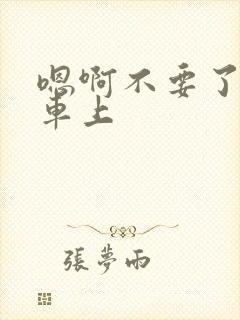 嗯啊不要了
車上
張夢雨